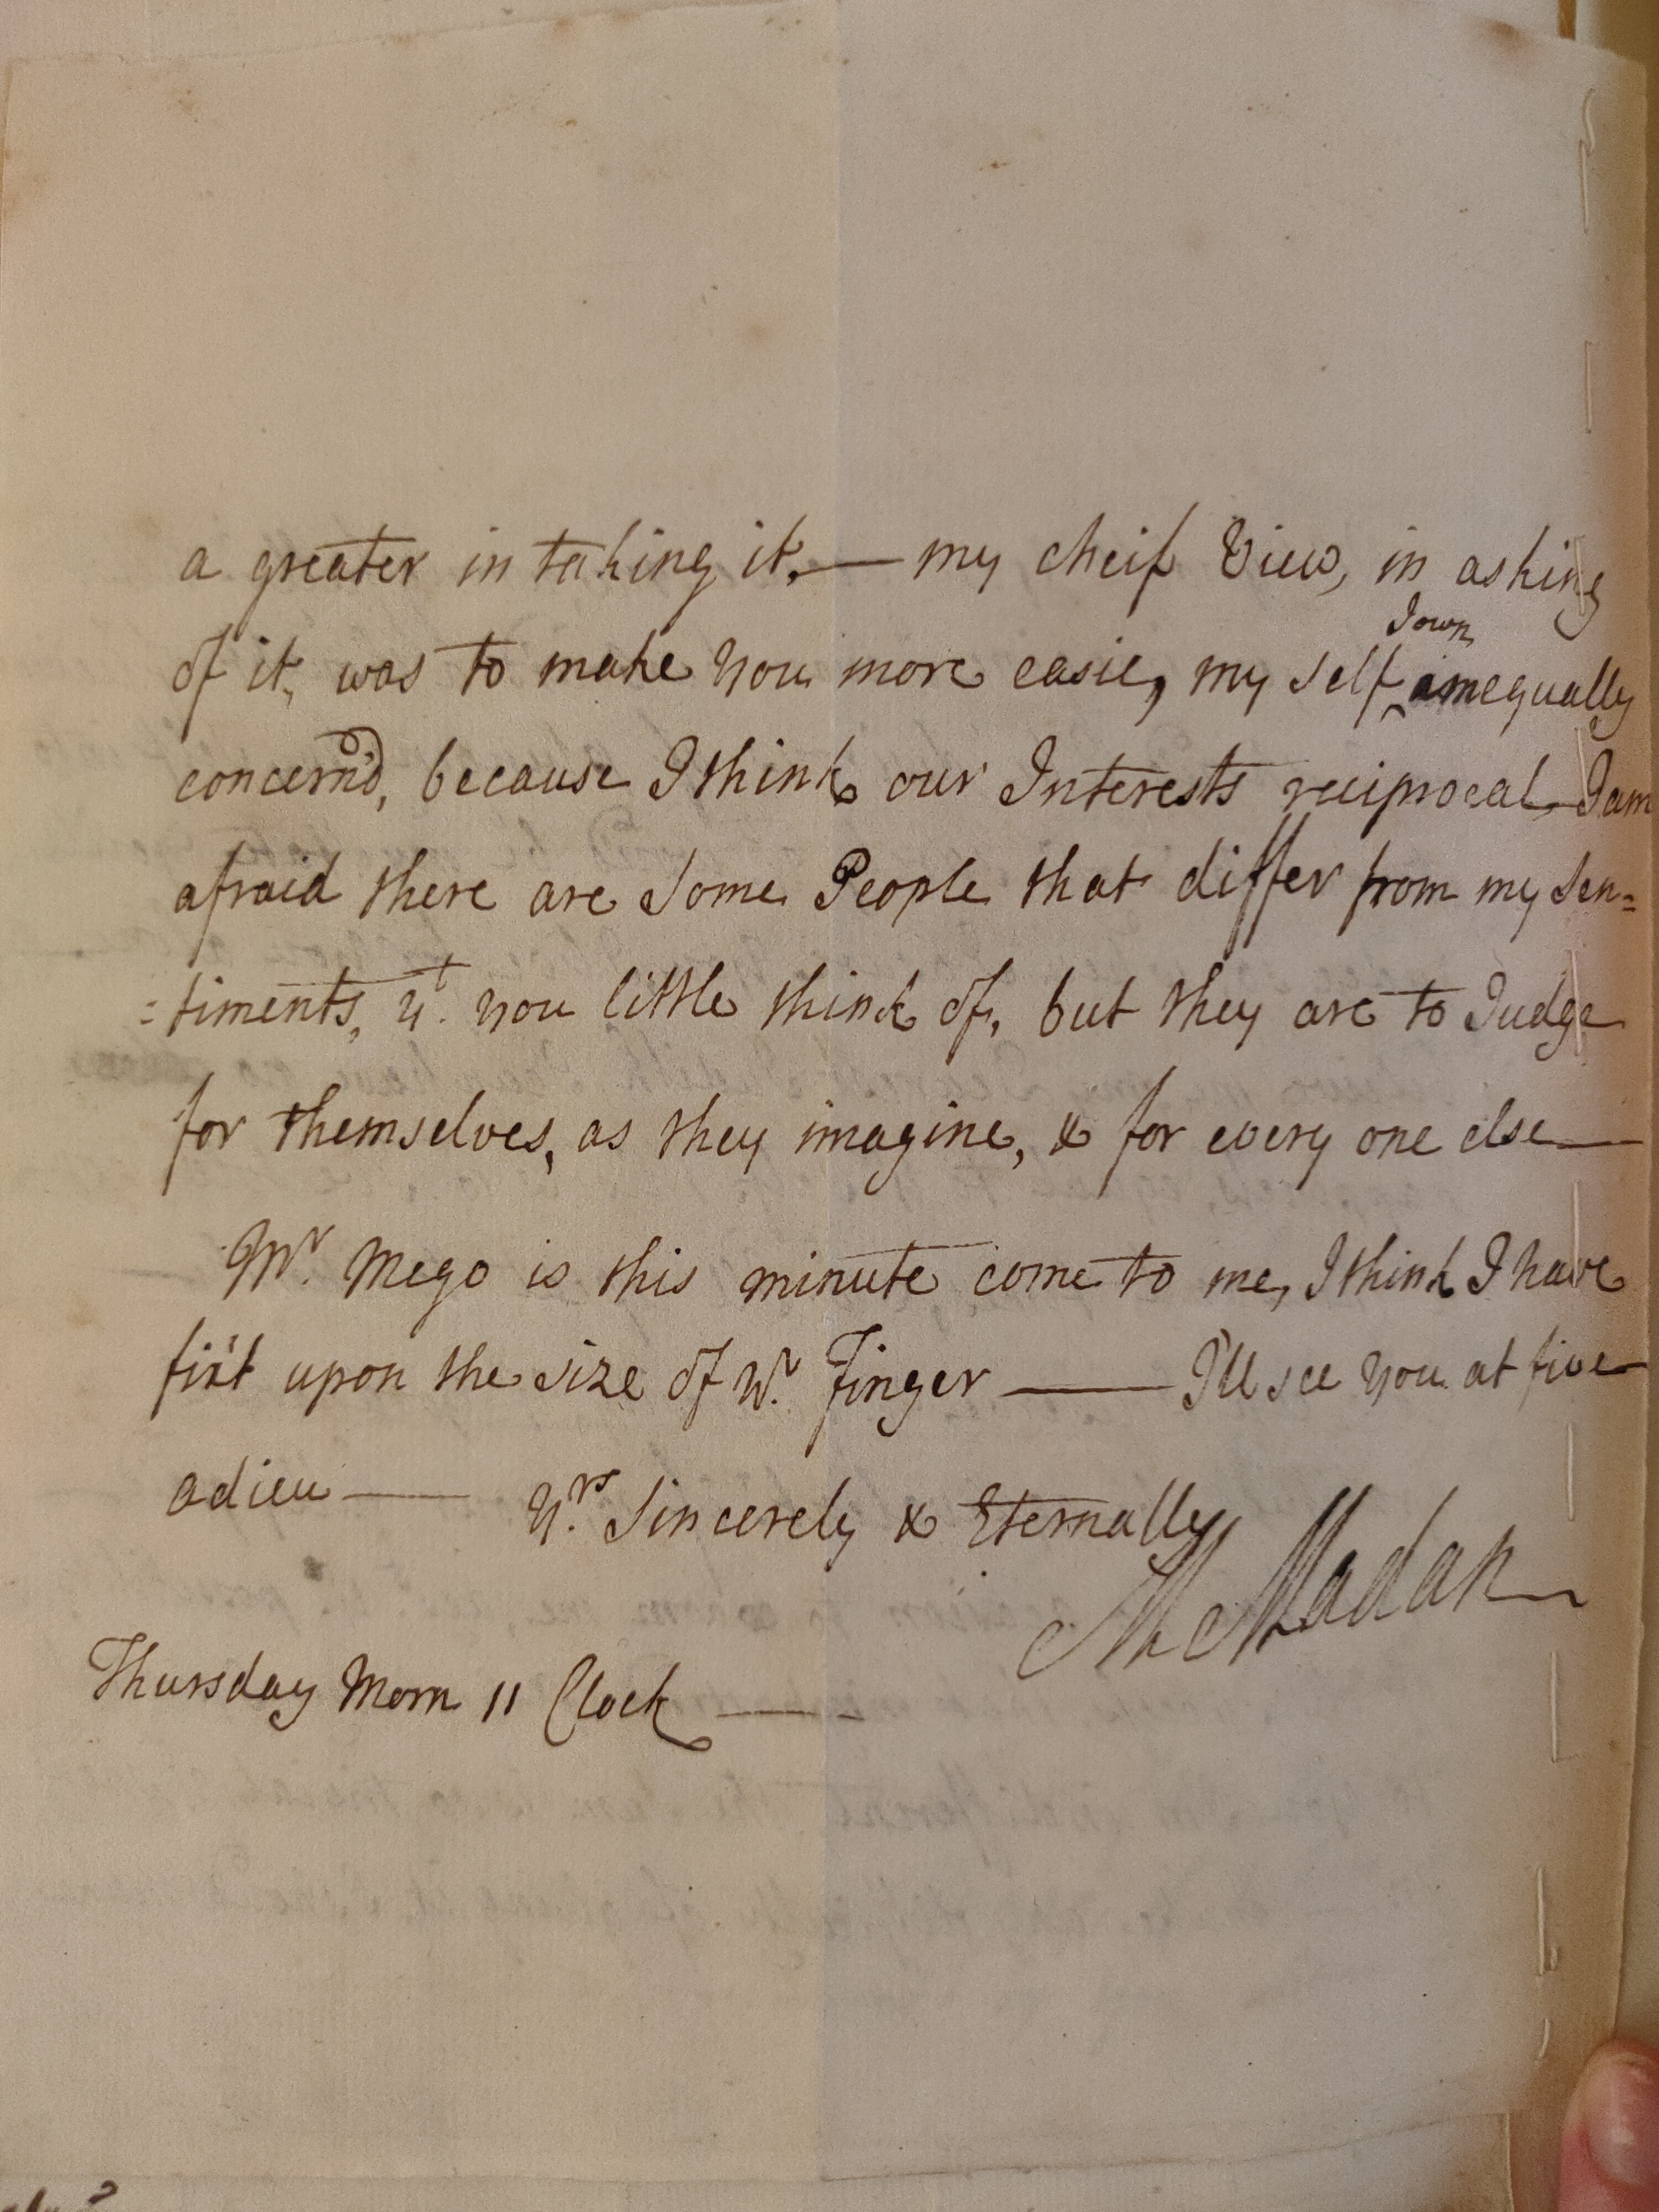 a greater in taking it, — my cheif View, in asking
of it, was to make you more easie, my self I own am equally
concern'd, because I think our Interests reciprocal — I am
afraid there are some People that differ from my sen=
=timents, yt. you little think of, but they are to Judge
for themselves, as they imagine, & for every one else —
Mr. Mego is this minute come to me, I think I have
fix't upon the size of yr. Finger — I'll see you at five
adieu — Yrs. Sincerely & Eternally
M Madan
Thursday Morn 11 Clock —